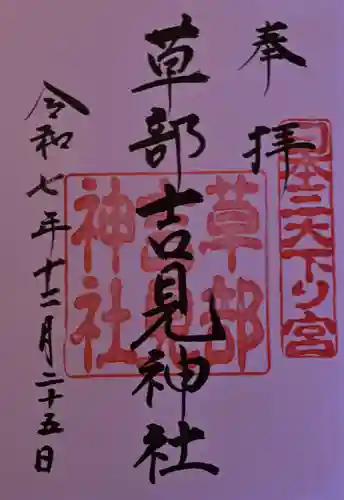 奉拝
日本三大下り宮
草部吉見神社
草部吉見神社
令和七年十二月二十五日